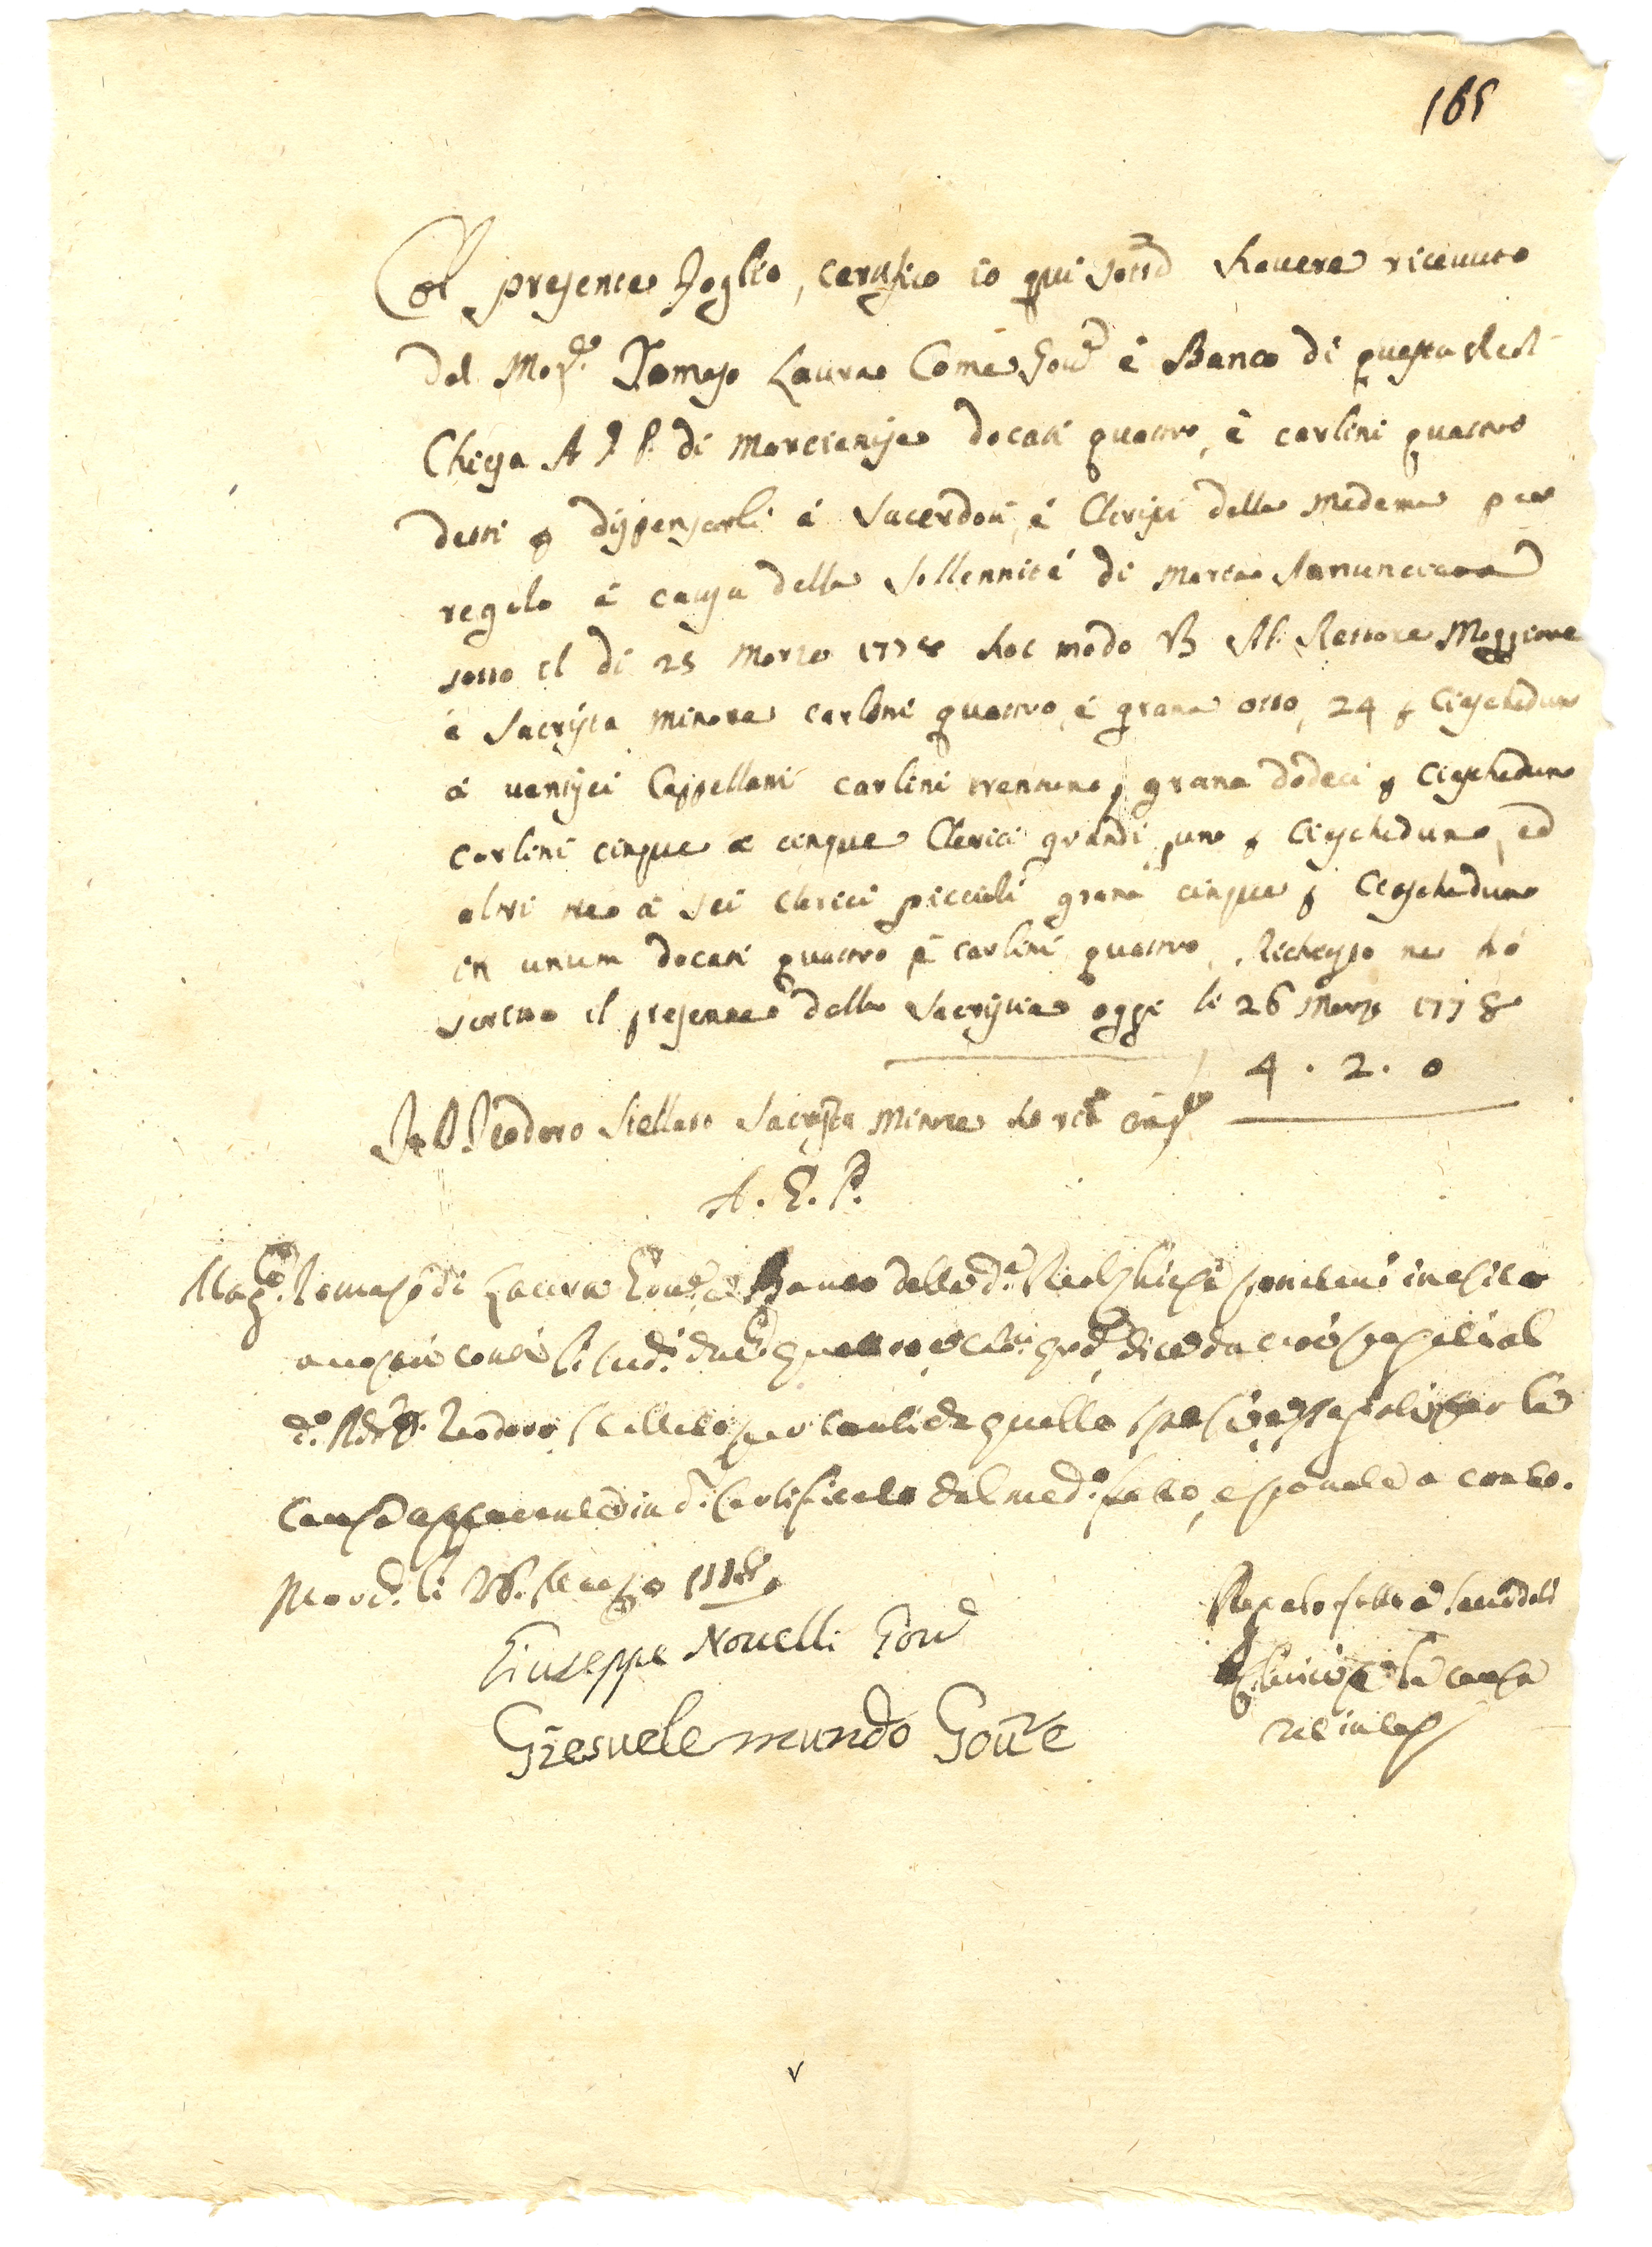 165
Col presente foglio, certifico io qui sottto havere ricevuto
dal Mag.co Tomaso Laura Come Gov.e è Banco di questa Real
Chiesa A G P. di Marcianise docati quattro, è carlini quattro
detti p dispensarli à Sacerdoti, è Clerici della medema per
regalo à causa della sollennità di Maria Annunciata
sotto il dì 25 Marzo 1778 hoc modo Al Rettore Maggiore
è Sacrista minore carlini quattro, è grana otto, 24 p Ciascheduno
à ventisei Cappellani carlini trentuno, grana dodeci p Ciascheduno
carlini cinque a cinque Clerici grandi, uno p Ciascheduno, ed
altri tre à sei clerici piccioli grana cinque p Ciascheduno
in unum docati quattro è carlini quattro, Richiesto ne hò
scritto il presente dalla Sacristia oggi li 26 Marzo 1778
4 . 2 . 0
Io D. Teodoro Stellato Sacrista Minore ho ric.to
A. G. P.
Mag.co Tomaso di Laura Gov.e e Banco della d.a Real Chiesa ponitevi in esito
a vostri conti li sud.i quattro
d.o Teodoro Stellato per tanti da quello per la
Causa in d.o Certificato dal med.o fatto, e ponete a conto.
Marc.e li 26. Marzo 1778.
Giuseppe Novelli Gov.e
Giesuele mundo Gov.re
Regalo fatto à Sacerdoti
e Clerici p la causa